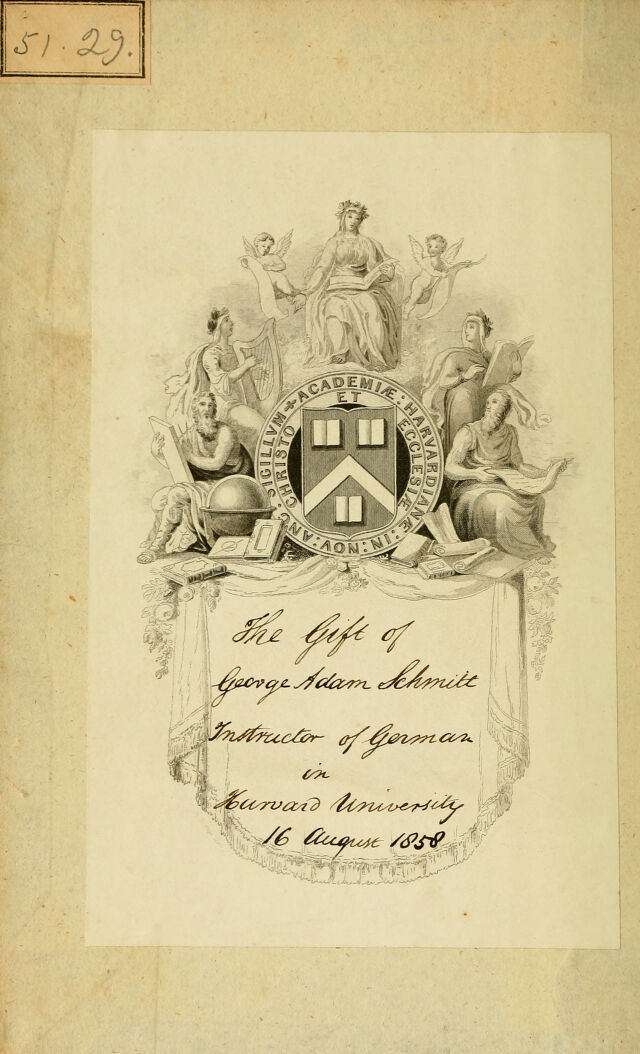 51.29.
SIGILLVM ✢ ACADEMIÆ : HARVARDIANÆ : IN : NOV : ANG :
CHRISTO ET ECCLESIÆ
The Gift of
George Adam Schmitt
Instructor of German
in
Harvard University
16 August 1858